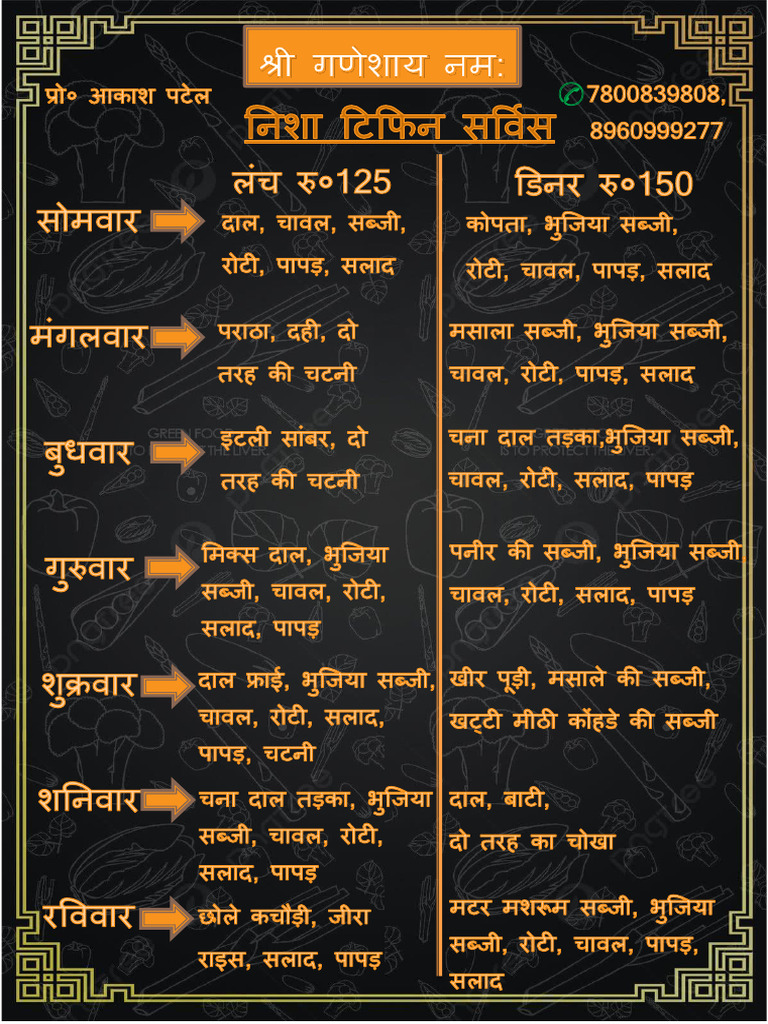 श्री गणेशाय नम:
प्रो० आकाश पटेल
7800839808,
8960999277
निशा टिफिन सर्विस
लंच रु०125
डिनर रु०150
सोमवार
दाल, चावल, सब्जी,
रोटी, पापड़, सलाद
कोपता, भुजिया सब्जी,
रोटी, चावल, पापड़, सलाद
मंगलवार
पराठा, दही, दो
तरह की चटनी
मसाला सब्जी, भुजिया सब्जी,
चावल, रोटी, पापड़, सलाद
बुधवार
इटली सांबर, दो
तरह की चटनी
चना दाल तड़का,भुजिया सब्जी,
चावल, रोटी, सलाद, पापड़
गुरुवार
मिक्स दाल, भुजिया
सब्जी, चावल, रोटी,
सलाद, पापड़
पनीर की सब्जी, भुजिया सब्जी,
चावल, रोटी, सलाद, पापड़
शुक्रवार
दाल फ्राई, भुजिया सब्जी,
चावल, रोटी, सलाद,
पापड़, चटनी
खीर पूड़ी, मसाले की सब्जी,
खट्टी मीठी कोंहडे की सब्जी
शनिवार
चना दाल तड़का, भुजिया
सब्जी, चावल, रोटी,
सलाद, पापड़
दाल, बाटी,
दो तरह का चोखा
रविवार
छोले कचौड़ी, जीरा
राइस, सलाद, पापड़
मटर मशरूम सब्जी, भुजिया
सब्जी, रोटी, चावल, पापड़,
सलाद